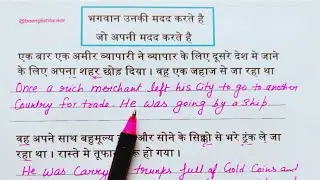 भगवान उनकी मदद करते है
जो अपनी मदद करते है
एक बार एक अमीर व्यापारी ने व्यापार के लिए दूसरे देश मे जाने
के लिए अपना शहर छोड़ दिया। वह एक जहाज से जा रहा था
Once a rich merchant left his City to go to another
Country for trade. He was going by a ship
वह अपने साथ बहुमूल्य और सोने के सिक्को से भरे ट्रंक ले जा
रहा था। रास्ते मे तूफा हो गया।
He was Carry trunks full of Gold Coins and